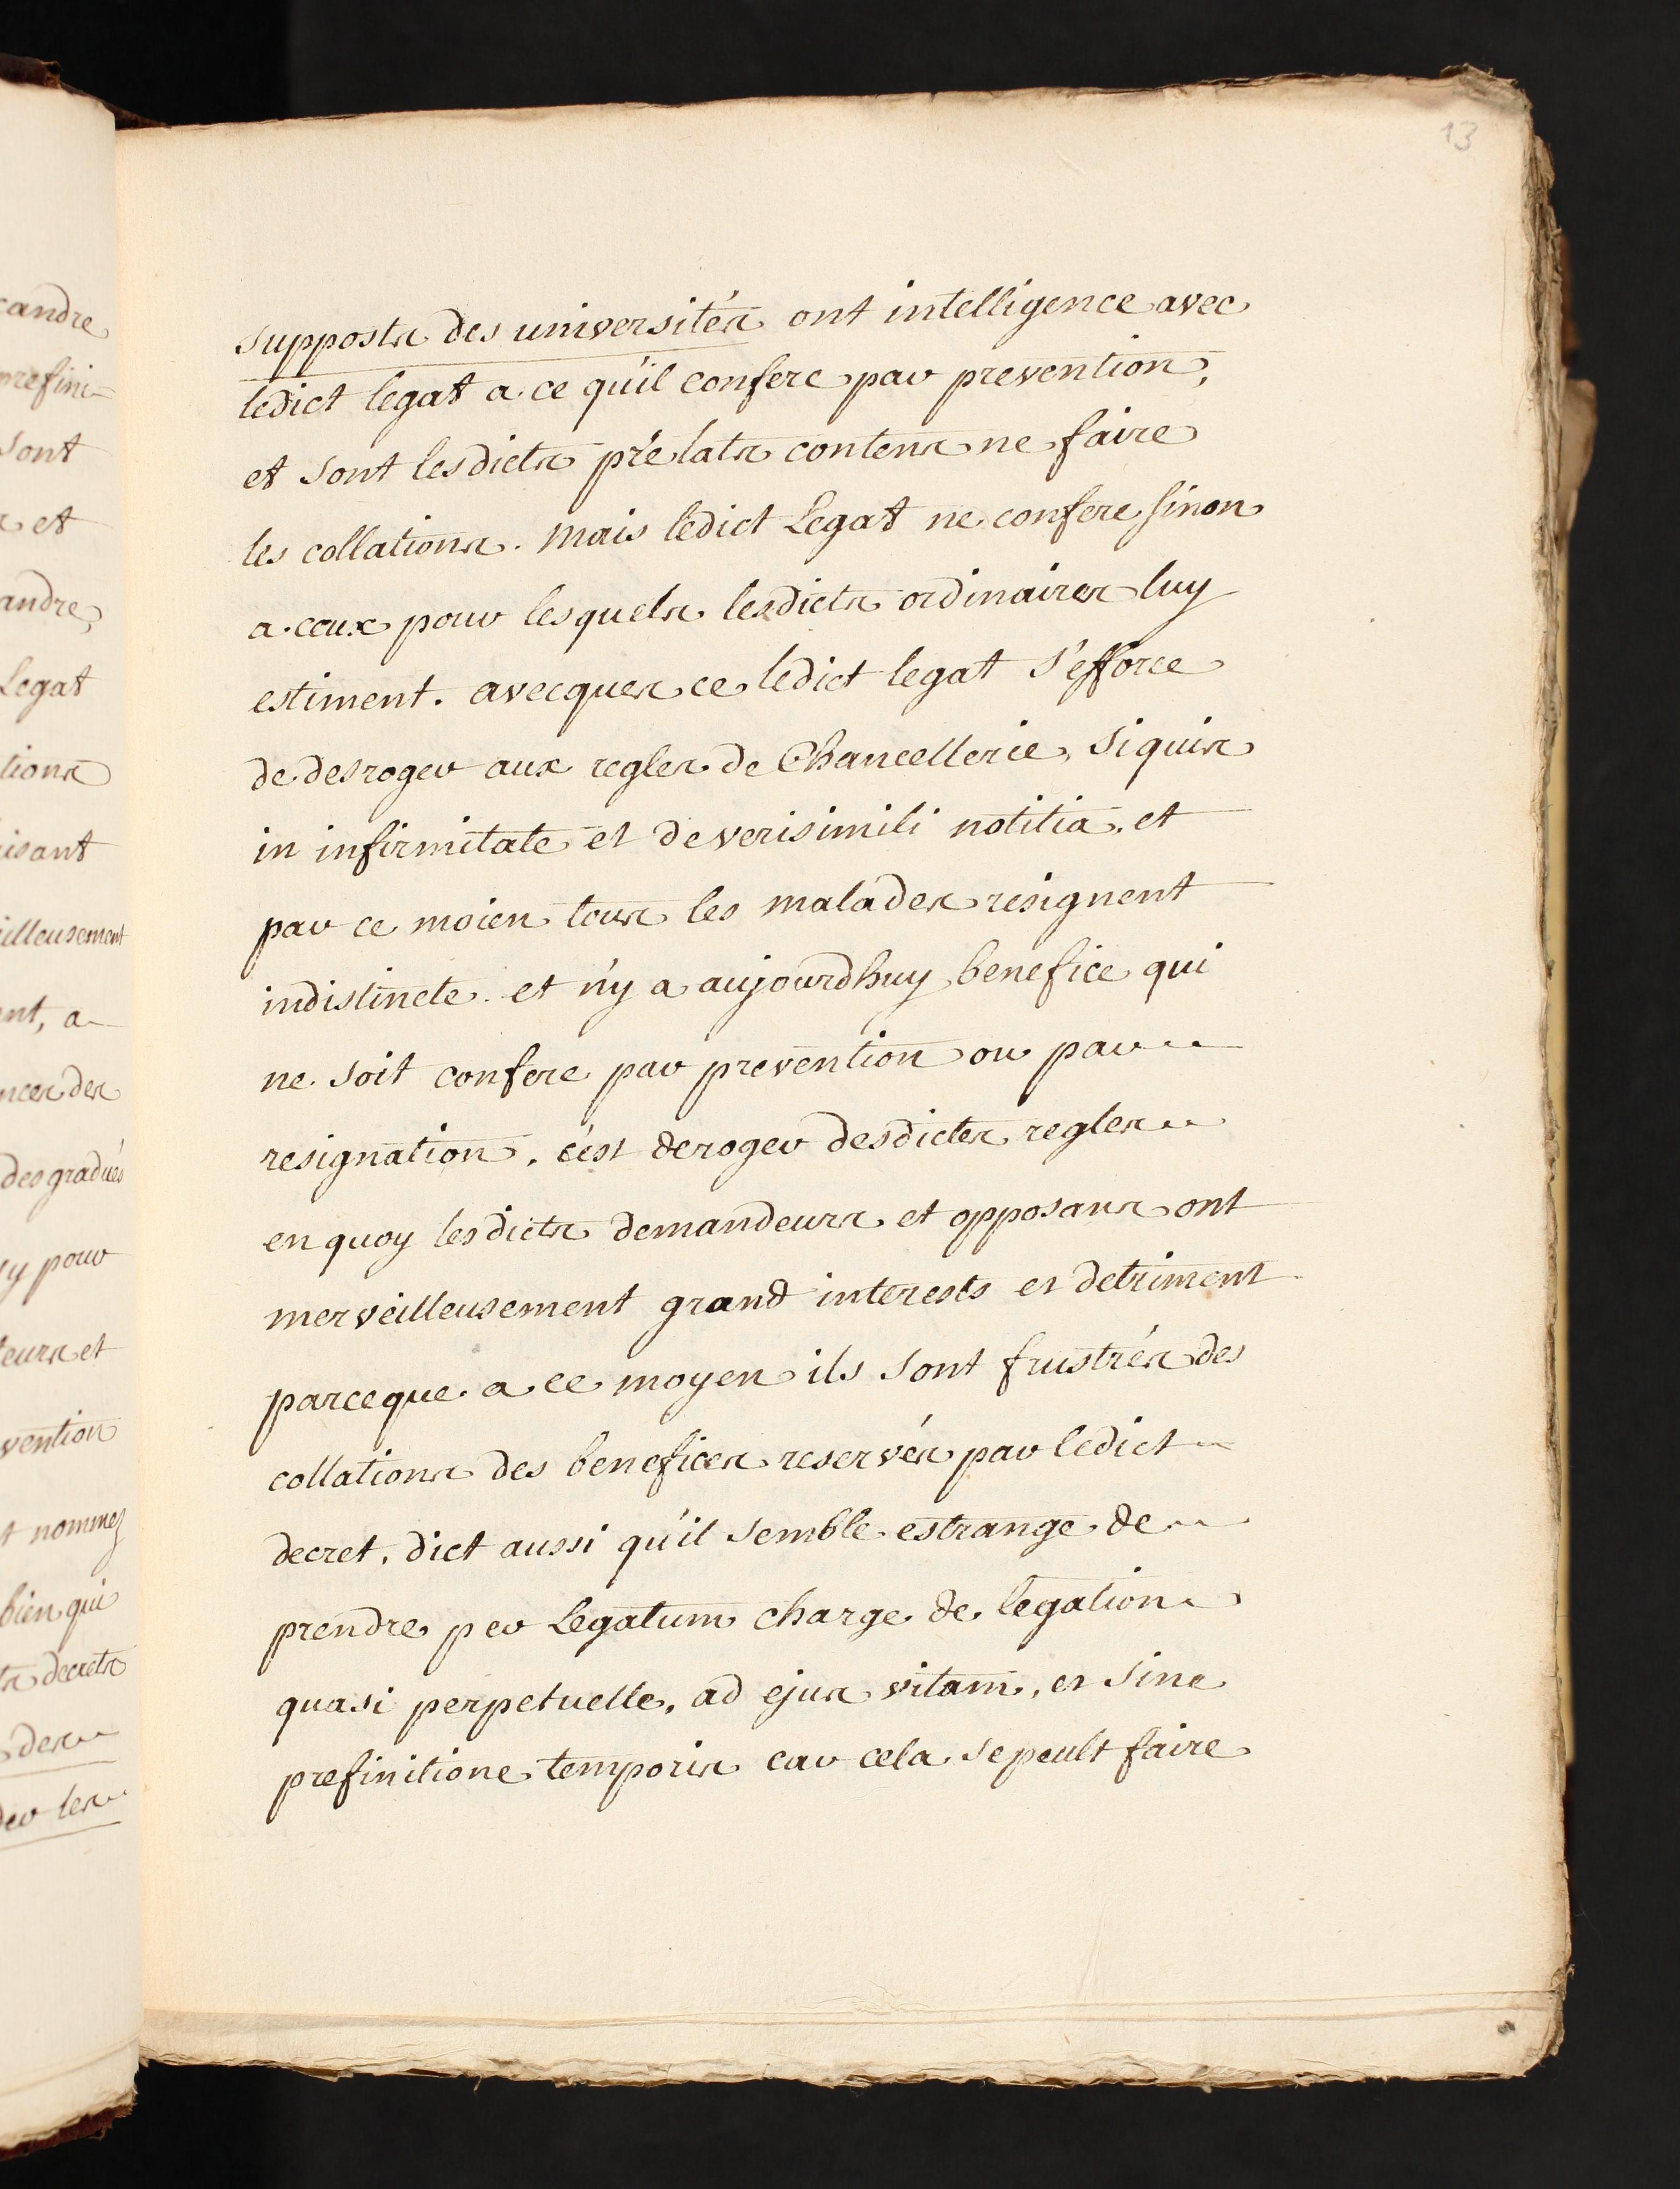 13
supposts des universités ont intelligence avec
ledict legat a ce qu'il confere par prevention,
et sont lesdicts prélats contens ne faire
les collations. Mais ledict Legat ne confere sinon
a ceux pour lesquels lesdicts ordinaires luy
estiment. avecques ce ledict legat s'efforce
de desroger aux regles de Chancellerie, si quis
in infirmitate et de verisimili notitia. et
par ce moien tous les malades resignent
indistincte. et n'y a aujourdhuy benefice qui
ne soit confere par prevention ou par
resignation, c'est deroger desdictes regles
en quoy lesdicts demandeurs et opposans ont
merveilleusement grand interests et detriment
parceque a ce moyen ils sont frustrés des
collations des benefices reservés par ledict
decret, dict aussi qu'il semble estrange de
prendre per Legatum charge de legation
quasi perpetuelle, ad ejus vitam, et sine
prefinitione temporis car cela se peult faire